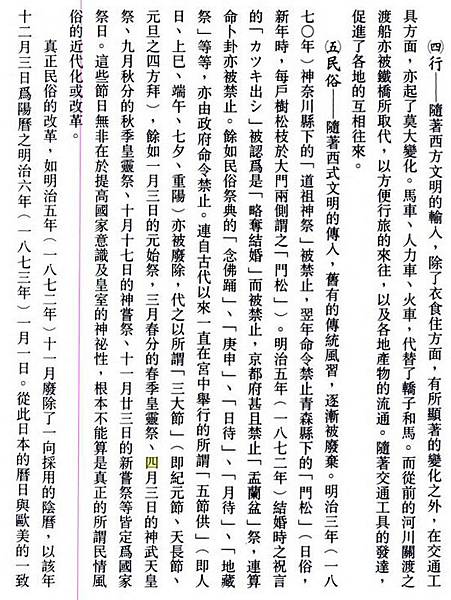 ㈣行——隨著西方文明的輸入，除了衣食住方面，有所顯著的變化之外，在交通工
具方面，亦起了莫大變化。馬車、人力車、火車，代替了轎子和馬。而從前的河川關渡之
渡船亦被鐵橋所取代，以方便行旅的來往，以及各地產物的流通。隨著交通工具的發達，
促進了各地的互相往來。
㈤民俗——隨著西式文明的傳入，舊有的傳統風習，逐漸被廢棄。明治三年（一八
七〇年）神奈川縣下的「道祖神祭」被禁止，翌年命令禁止青森縣下的「門松」（日俗，
新年時，每戶樹松枝於大門兩側謂之「門松」）。明治五年（一八七二年）結婚時之祝言
的「カツキ出シ」被認爲是「略奪結婚」而被禁止，京都府甚且禁止「盂蘭盆」祭，連算
命卜卦亦被禁止。餘如民俗祭典的「念佛踊」、「庚申」、「日待」、「月待」、「地藏
祭」等等，亦由政府命令禁止。連自古代以來一直在宮中舉行的所謂「五節供」（即人
日、上巳、端午、七夕、重陽）亦被廢除，代之以所謂「三大節」（即紀元節、天長節、
元旦之四方拜），餘如一月三日的元始祭，三月春分的春季皇靈祭、四月三日的神武天皇
祭、九月秋分的秋季皇靈祭、十月十七日的神嘗祭、十一月廿三日的新嘗祭等皆定爲國家
祭日。這些節日無非在於提高國家意識及皇室的神祕性，根本不能算是真正的所謂民情風
俗的近代化或改革。
真正民俗的改革，如明治五年（一八七二年）十一月廢除了一向採用的陰曆，以該年
十二月三日爲陽曆之明治六年（一八七三年）一月一日。從此日本的曆日與歐美的一致